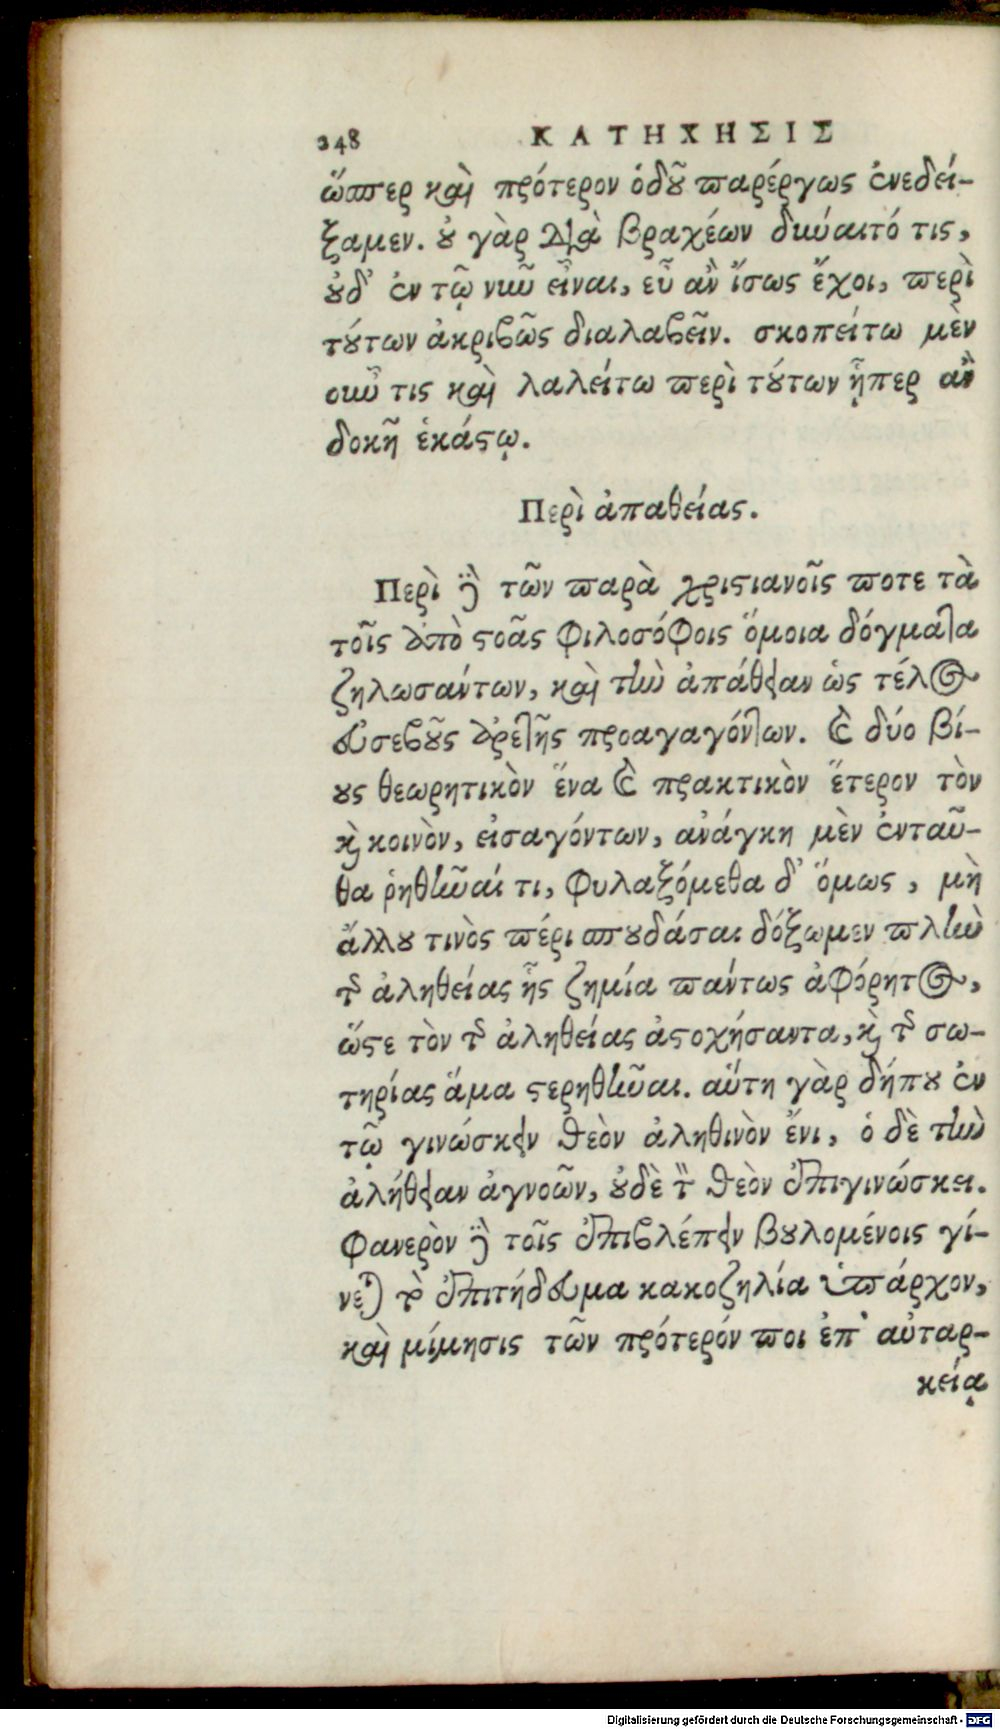 248 ΚΑΤΗΧΗΣΙΣ
ὥσπερ καὶ πρότερον ὁδοῦ παρέργως ἐνεδεί-
ξαμεν. οὐ γὰρ διὰ βραχέων δύναιτό τις,
οὐδ' ἐν τῷ νῦν εἶναι, εὖ ἂν ἴσως ἔχοι, περὶ
τούτων ἀκριβῶς διαλαβεῖν. σκοπείτω μὲν
οὖν τις καὶ λαλείτω περὶ τούτων ᾗπερ ἂν
δοκῇ ἑκάστῳ.
Περὶ ἀπαθείας.
Περὶ δὲ τῶν παρὰ χριστιανοῖς ποτε τὰ
τοῖς ἀπὸ στοᾶς φιλοσόφοις ὅμοια δόγματα
ζηλωσάντων, καὶ τὴν ἀπάθειαν ὡς τέλος
εὐσεβοῦς ἀρετῆς προαγαγόντων. καὶ δύο βί-
ους θεωρητικὸν ἕνα καὶ πρακτικὸν ἕτερον τὸν
καὶ κοινὸν, εἰσαγόντων, ἀνάγκη μὲν ἐνταῦ-
θα ῥηθῆναί τι, φυλαξόμεθα δ' ὅμως, μὴ
ἄλλου τινὸς πέρι σπουδάσαι δόξωμεν πλὴν
τῆς ἀληθείας ἧς ζημία πάντως ἀφόρητος,
ὥστε τὸν τῆς ἀληθείας ἀστοχήσαντα, καὶ τῆς σω-
τηρίας ἅμα στερηθῆναι. αὕτη γὰρ δήπου ἐν
τῷ γινώσκειν θεὸν ἀληθινὸν ἔνι, ὁ δὲ τὴν
ἀλήθειαν ἀγνοῶν, οὐδὲ τὸν θεὸν ἐπιγινώσκει.
φανερὸν δὲ τοῖς ἐπιβλέπειν βουλομένοις γί-
νεται τὸ ἐπιτήδευμα κακοζηλία ὑπάρχον,
καὶ μίμησις τῶν πρότερόν ποι ἐπ' αὐταρ-
κείᾳ
Digitalisierung gefördert durch die Deutsche Forschungsgemeinschaft - DFG